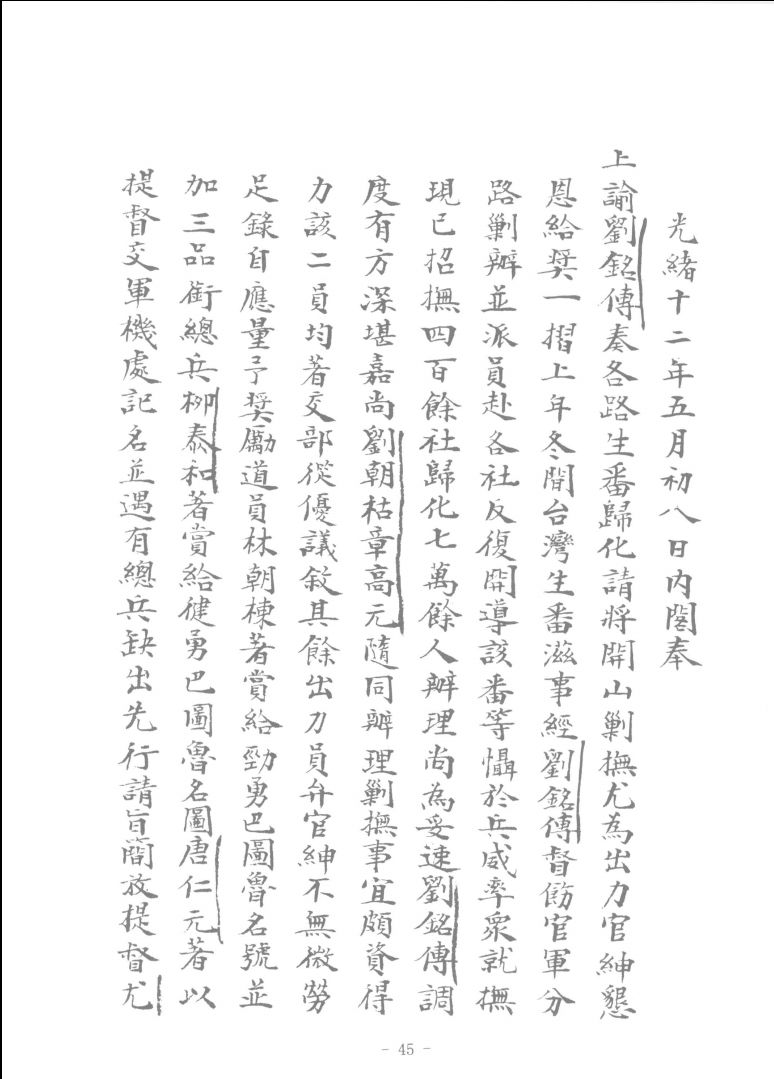 光緒十二年五月初八日內閣奉
上諭劉銘傳奏各路生番歸化請將開山剿撫尤為出力官紳懇
恩給獎一摺上年冬間台灣生番滋事經劉銘傳督飭官軍分
路剿辦並派員赴各社反復開導該番等懾於兵威率眾就撫
現已招撫四百餘社歸化七萬餘人辦理尚為妥速劉銘傳調
度有方深堪嘉尚劉朝枯章高元隨同辦理剿撫事宜頗資得
力該二員均著交部從優議敘其餘出力員弁官紳不無微勞
足錄自應量予獎勵道員林朝棟著賞給勁勇巴圖魯名號並
加三品銜總兵柳泰和著賞給健勇巴圖魯名圖唐仁元著以
提督交軍機處記名並遇有總兵缺出先行請旨簡放提督尤
- 45 -